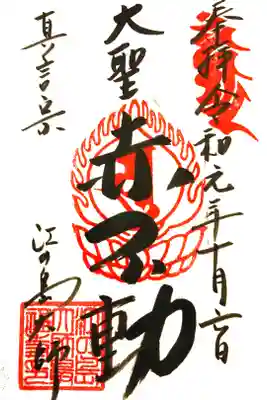 奉拝 令和元年十月六日
大聖
赤不動
真言宗
江の島大師